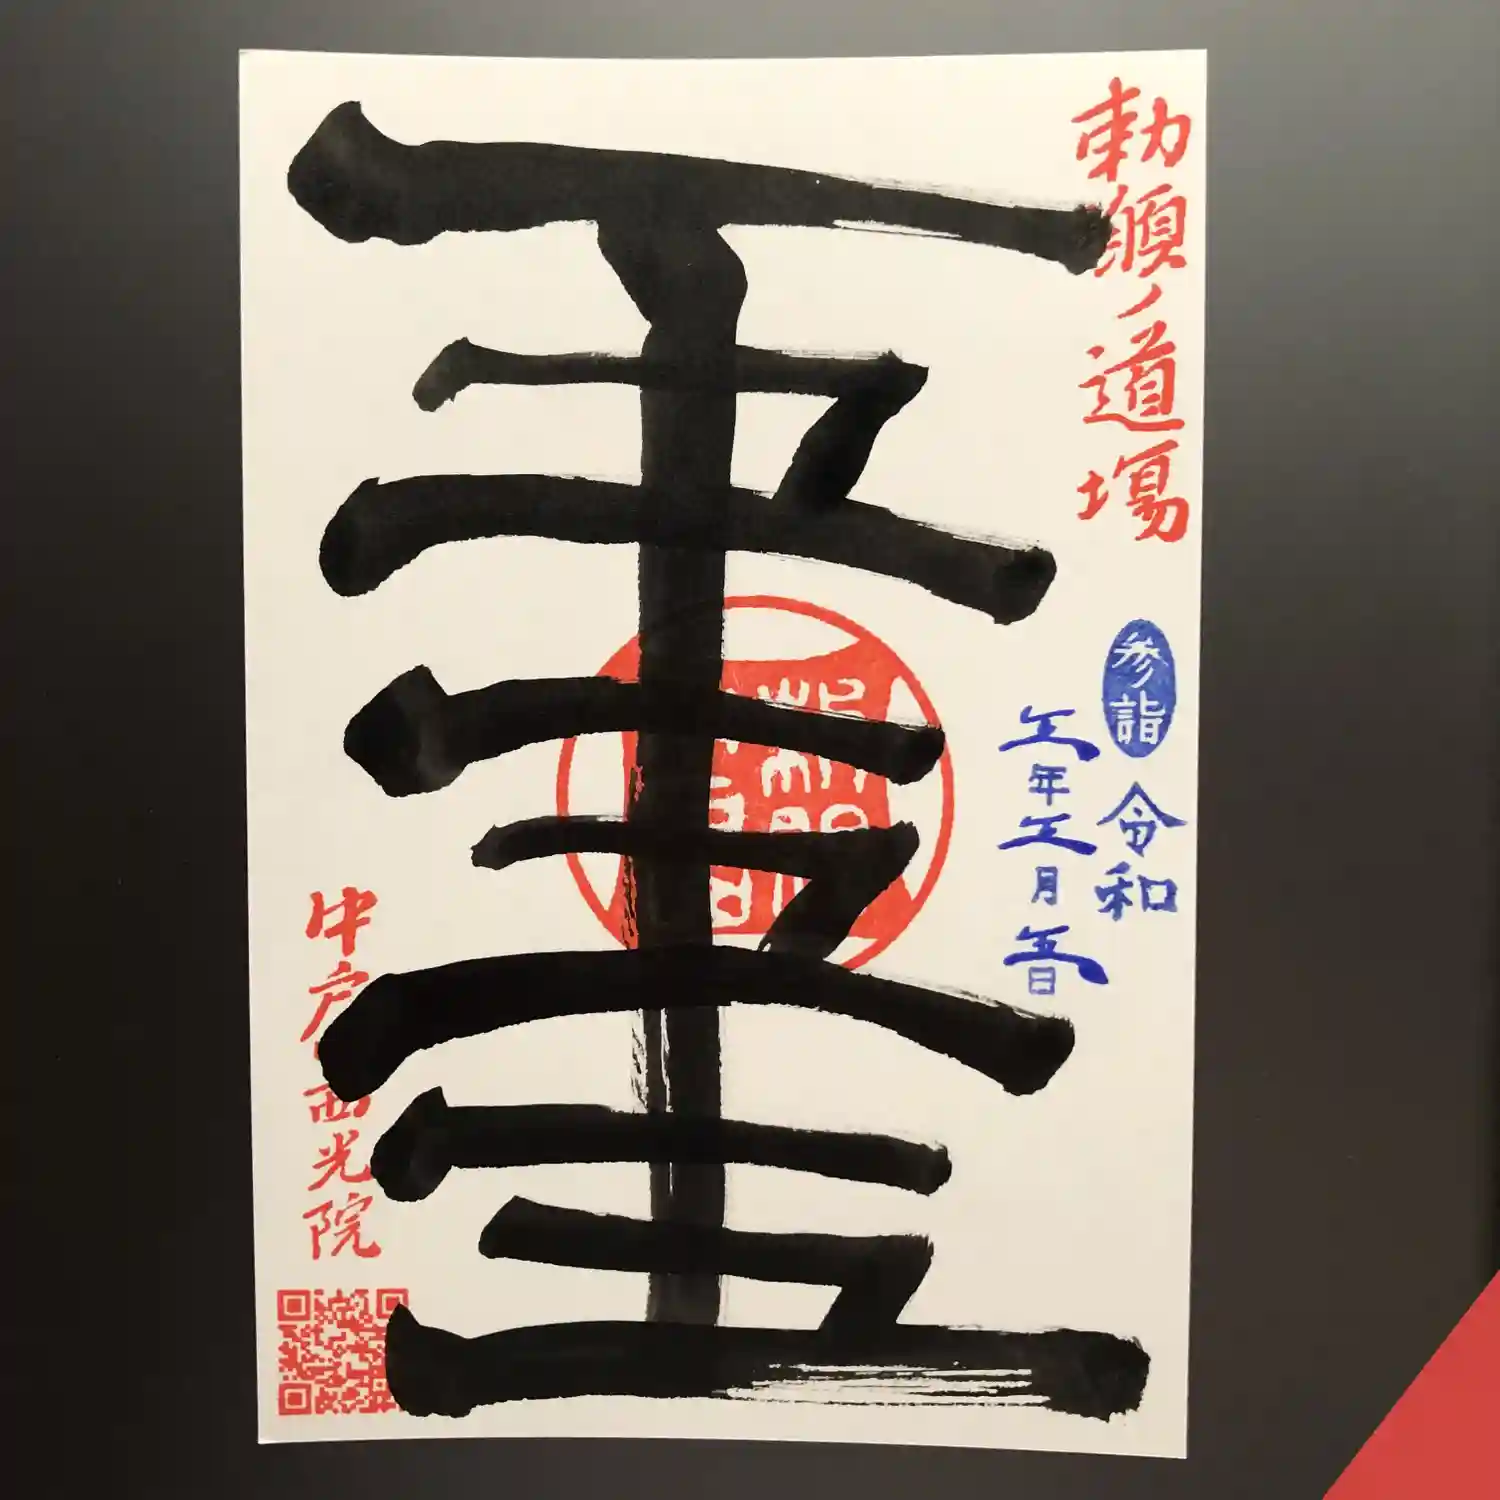 勅願ノ道場
参詣
令和
五年五月五日
五五五
中戸 西光院